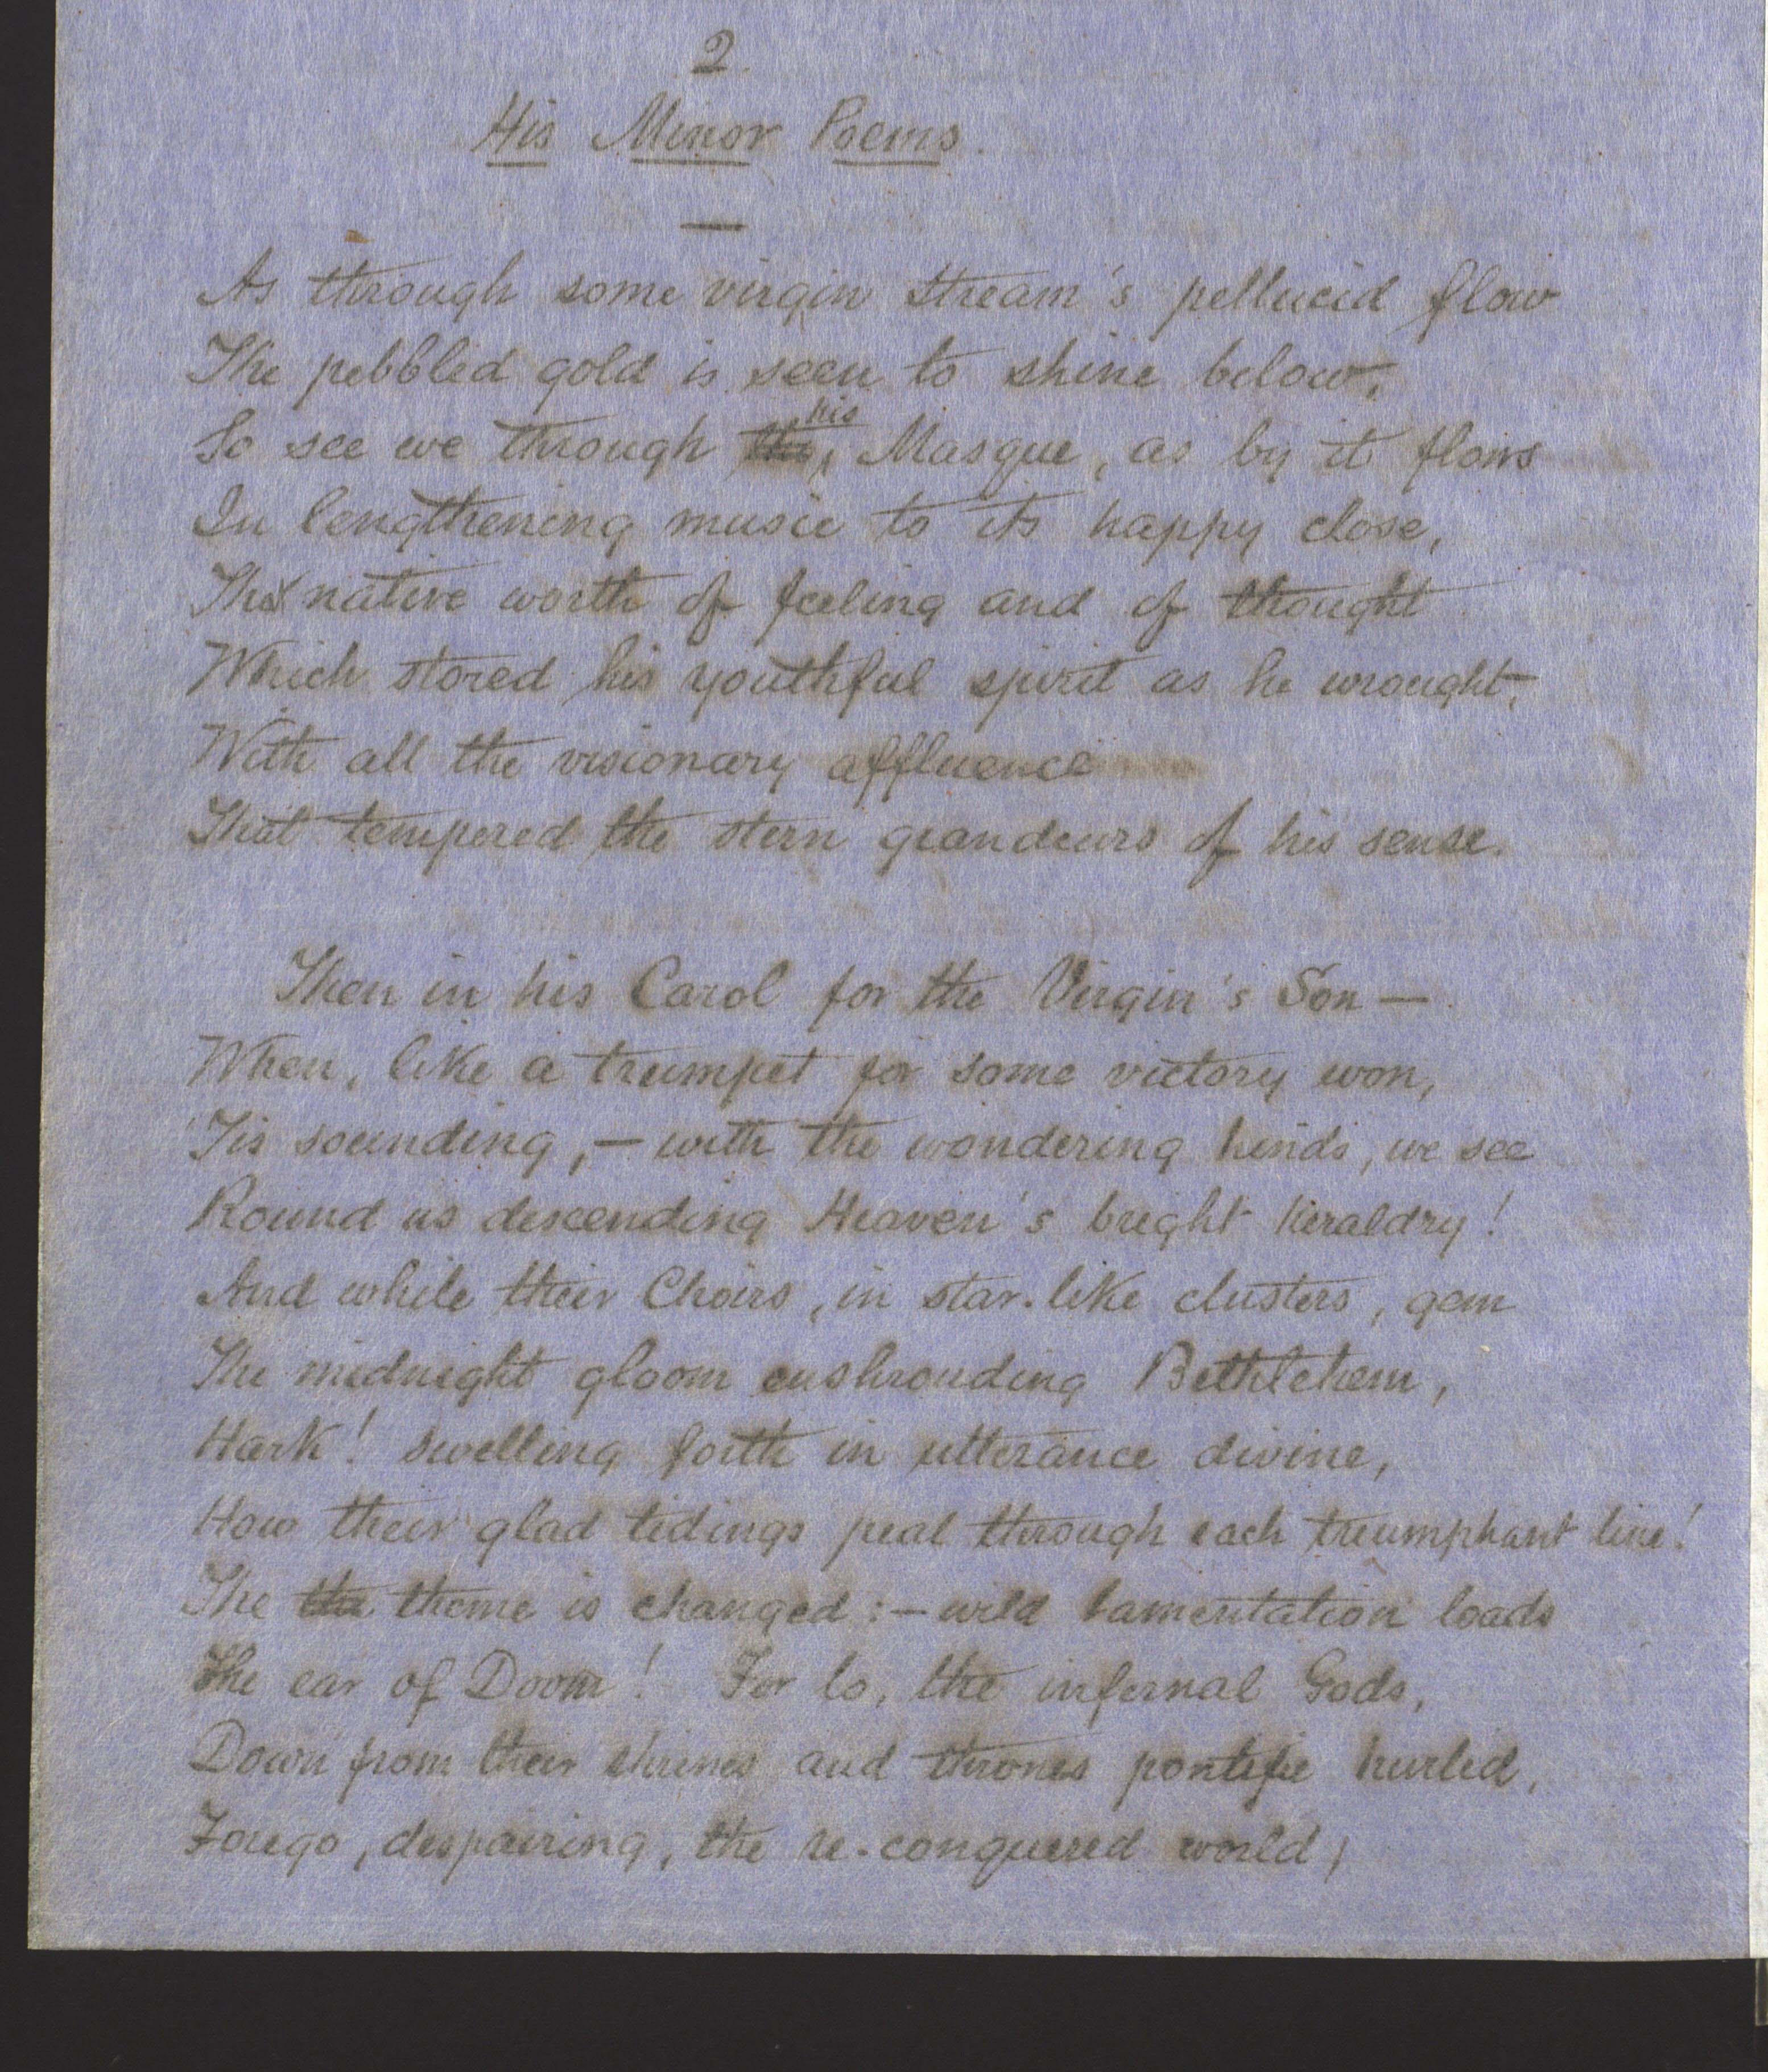 2
His Minor Poems.
—
As through some virgin stream's pellucid flow
The pebbled gold is seen to shine below,
So see we through his Masque, as by it flows
In lengthening music to its happy close,
The native worth of feeling and of thought
Which stored his youthful spirit as he wrought,
With all the visionary affluence
That tempered the stern grandeurs of his sense.
Then in his Carol for the Virgin's Son —
When, like a trumpet for some victory won,
'Tis sounding, — with the wondering hinds, we see
Round us descending Heaven's bright heraldry!
And while their Choirs, in star-like clusters, gem
The midnight gloom enshrouding Bethlehem,
Hark! swelling forth in utterance divine,
How their glad tidings peal through each triumphant line!
The the theme is changed: — wild lamentation loads
The ear of Doom! For lo, the infernal Gods,
Down from their shrines and thrones pontific hurled,
Forego, despairing, the re-conquered world;